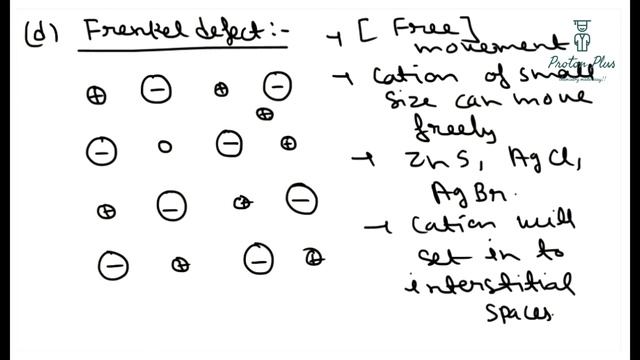 (d) Frenkel defect :-
→ [Free]
movement
→ Cation of small
size can move
freely
→ ZnS, AgCl,
AgBr.
→ Cation will
set in to
interstitial
spaces.
Proton Plus